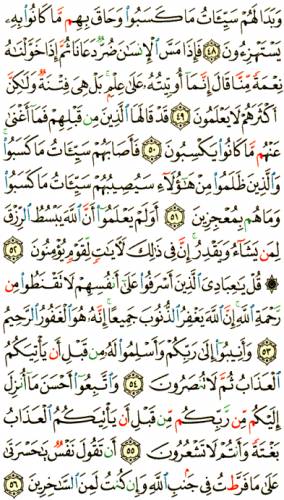 وَبَدَا لَهُمْ سَيِّـَٔاتُ مَا كَسَبُوا۟ وَحَاقَ بِهِم مَّا كَانُوا۟ بِهِۦ
يَسْتَهْزِءُونَ ٤٨ فَإِذَا مَسَّ ٱلْإِنسَٰنَ ضُرٌّ دَعَانَا ثُمَّ إِذَا خَوَّلْنَٰهُ
نِعْمَةً مِّنَّا قَالَ إِنَّمَآ أُوتِيتُهُۥ عَلَىٰ عِلْمٍۭ ۚ بَلْ هِىَ فِتْنَةٌ وَلَٰكِنَّ
أَكْثَرَهُمْ لَا يَعْلَمُونَ ٤٩ قَدْ قَالَهَا ٱلَّذِينَ مِن قَبْلِهِمْ فَمَآ أَغْنَىٰ
عَنْهُم مَّا كَانُوا۟ يَكْسِبُونَ ٥٠ فَأَصَابَهُمْ سَيِّـَٔاتُ مَا كَسَبُوا۟ ۚ
وَٱلَّذِينَ ظَلَمُوا۟ مِنْ هَٰٓؤُلَآءِ سَيُصِيبُهُمْ سَيِّـَٔاتُ مَا كَسَبُوا۟
وَمَا هُم بِمُعْجِزِينَ ٥١ أَوَلَمْ يَعْلَمُوٓا۟ أَنَّ ٱللَّهَ يَبْسُطُ ٱلرِّزْقَ
لِمَن يَشَآءُ وَيَقْدِرُ ۚ إِنَّ فِى ذَٰلِكَ لَءَايَٰتٍ لِّقَوْمٍ يُؤْمِنُونَ ٥٢
۞ قُلْ يَٰعِبَادِىَ ٱلَّذِينَ أَسْرَفُوا۟ عَلَىٰٓ أَنفُسِهِمْ لَا تَقْنَطُوا۟ مِن
رَّحْمَةِ ٱللَّهِ ۚ إِنَّ ٱللَّهَ يَغْفِرُ ٱلذُّنُوبَ جَمِيعًا ۚ إِنَّهُۥ هُوَ ٱلْغَفُورُ ٱلرَّحِيمُ
٥٣ وَأَنِيبُوٓا۟ إِلَىٰ رَبِّكُمْ وَأَسْلِمُوا۟ لَهُۥ مِن قَبْلِ أَن يَأْتِيَكُمُ
ٱلْعَذَابُ ثُمَّ لَا تُنصَرُونَ ٥٤ وَٱتَّبِعُوٓا۟ أَحْسَنَ مَآ أُنزِلَ
إِلَيْكُم مِّن رَّبِّكُم مِّن قَبْلِ أَن يَأْتِيَكُمُ ٱلْعَذَابُ
بَغْتَةً وَأَنتُمْ لَا تَشْعُرُونَ ٥٥ أَن تَقُولَ نَفْسٌ يَٰحَسْرَتَىٰ
عَلَىٰ مَا فَرَّطتُ فِى جَنۢبِ ٱللَّهِ وَإِن كُنتُ لَمِنَ ٱلسَّٰخِرِينَ ٥٦